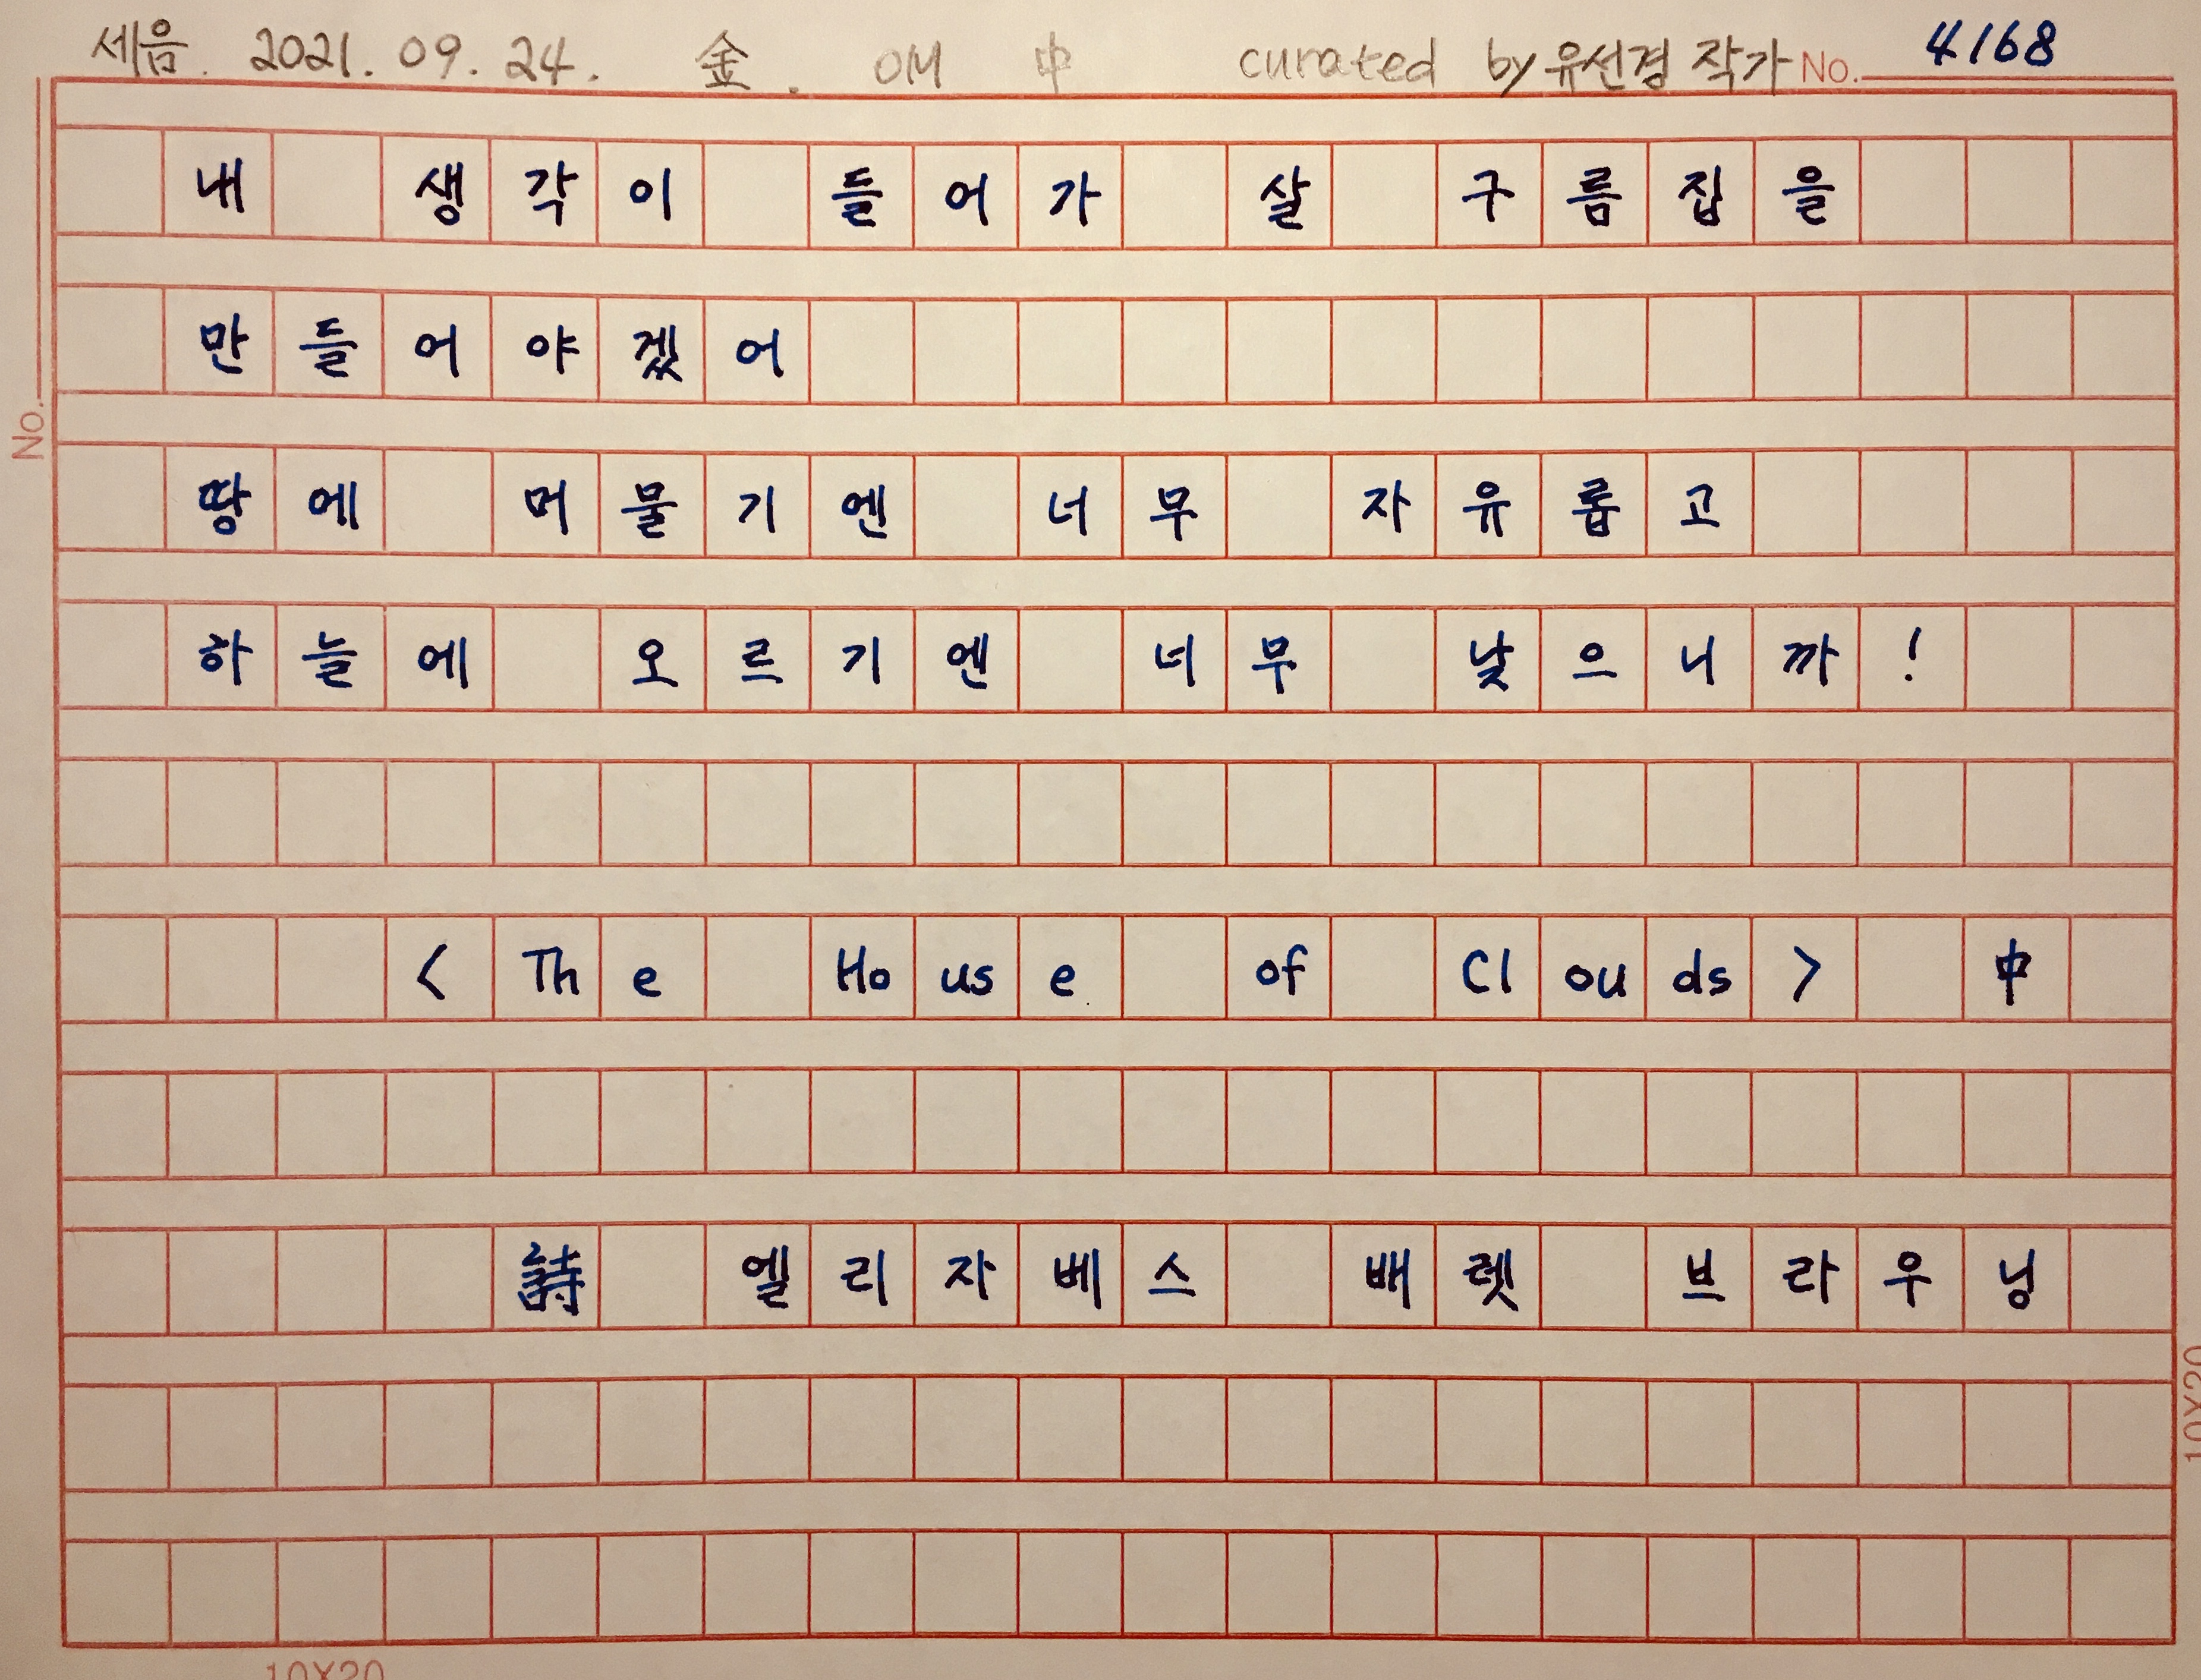 세음. 2021. 09. 24. 金. OM 中 curated by 유선경 작가 No. 4168
내 생각이 들어가 살 구름집을
만들어야겠어
No.
땅에 머물기엔 너무 자유롭고
하늘에 오르기엔 너무 낮으니까!
<The House of Clouds> 中
詩 엘리자베스 배렛 브라우닝
10X20
10X20